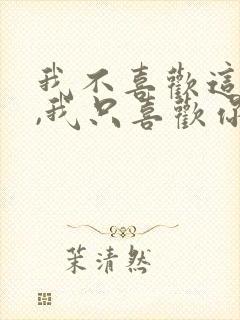 我不喜歡這
,我只喜歡你
茉清然